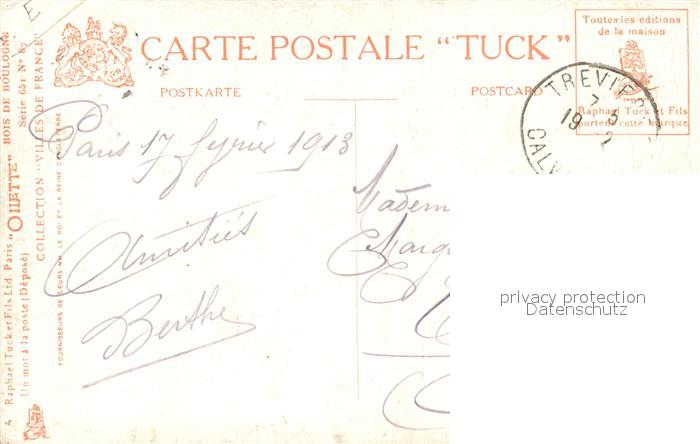 E
CARTE POSTALE "TUCK"
POSTKARTE
POSTCARD
Toutes les éditions
de la maison
Raphael Tuck et Fils
portent cette marque
TREVIER
7 5
19 2
CALV
Paris 17 fevrier 1913
Amitiés
Berthe
Madem
Marg
privacy protection
Datenschutz
"OILETTE" BOIS DE BOULOGNE
Série 651 N°
COLLECTION "VILLES DE FRANCE"
FOURNISSEURS DE LEURS MM. LE ROI ET LA REINE D'ANGLETERRE
4 Raphael Tuck et Fils Ltd. Paris
Un mot à la poste (Déposé)